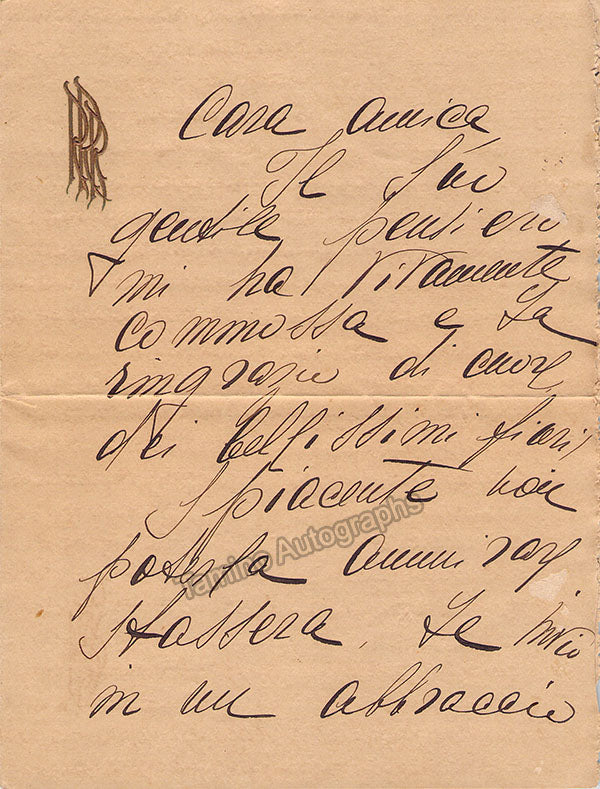 Cara amica
Il Suo
gentile pensiero
mi ha vivamente
commossa e La
ringrazio di cuore
dei bellissimi fiori
Spiacente non
poterla ammirare
stassera, Le invio
in un abbraccio
Tamino Autographs